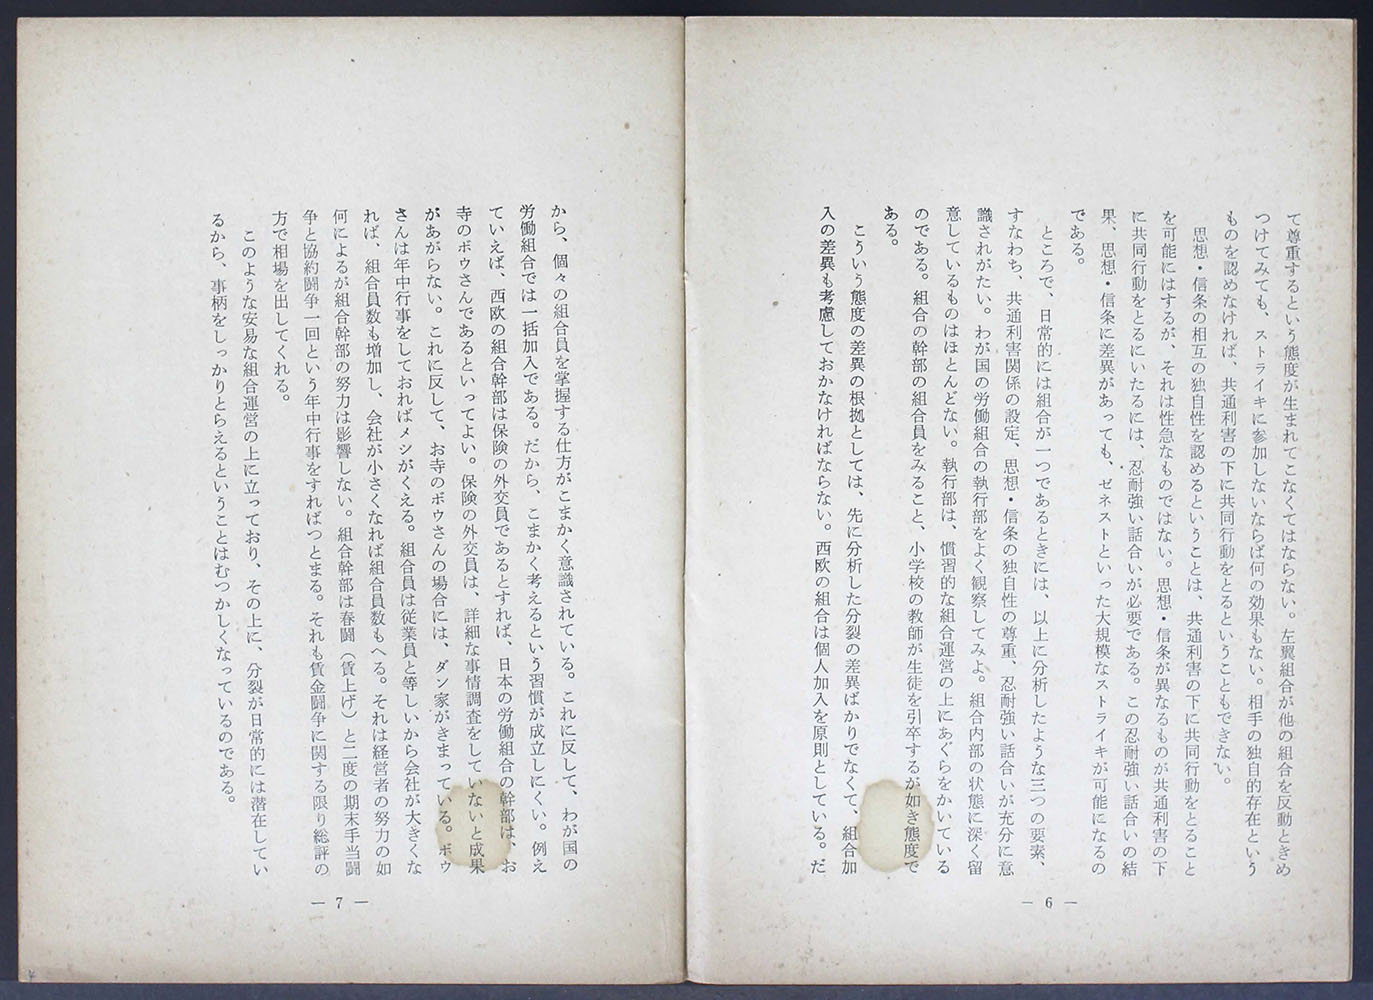 て尊重するという態度が生まれてこなくてはならない。左翼組合が他の組合を反動ときめ
つけてみても、ストライキに参加しないならば何の効果もない。相手の独自的存在という
ものを認めなければ、共通利害の下に共同行動をとるということもできない。
思想・信条の相互の独自性を認めるということは、共通利害の下に共同行動をとること
を可能にはするが、それは性急なものではない。思想・信条が異なるものが共通利害の下
に共同行動をとるにいたるには、忍耐強い話合いが必要である。この忍耐強い話合いの結
果、思想・信条に差異があっても、ゼネストといった大規模なストライキが可能になるの
である。
ところで、日常的には組合が一つであるときには、以上に分析したような三つの要素、
すなわち、共通利害関係の設定、思想・信条の独自性の尊重、忍耐強い話合いが充分に意
識されがたい。わが国の労働組合の執行部をよく観察してみよ。組合内部の状態に深く留
意しているものはほとんどない。執行部は、慣習的な組合運営の上にあぐらをかいている
のである。組合の幹部の組合員をみること、小学校の教師が生徒を引卒するが如き態度で
ある。
こういう態度の差異の根拠としては、先に分析した分裂の差異ばかりでなくて、組合加
入の差異も考慮しておかなければならない。西欧の組合は個人加入を原則としている。だ
— 6 —
から、個々の組合員を掌握する仕方がこまかく意識されている。これに反して、わが国の
労働組合では一括加入である。だから、こまかく考えるという習慣が成立しにくい。例え
ていえば、西欧の組合幹部は保険の外交員であるとすれば、日本の労働組合の幹部は、お
寺のボウさんであるといってよい。保険の外交員は、詳細な事情調査をしていないと成果
があがらない。これに反して、お寺のボウさんの場合には、ダン家がきまっている。ボウ
さんは年中行事をしておればメシがくえる。組合員は従業員と等しいから会社が大きくな
れば、組合員数も増加し、会社が小さくなれば組合員数もへる。それは経営者の努力の如
何によるが組合幹部の努力は影響しない。組合幹部は春闘（賃上げ）と二度の期末手当闘
争と協約闘争一回という年中行事をすればつとまる。それも賃金闘争に関する限り総評の
方で相場を出してくれる。
このような安易な組合運営の上に立っており、その上に、分裂が日常的には潜在してい
るから、事柄をしっかりとらえるということはむつかしくなっているのである。
— 7 —